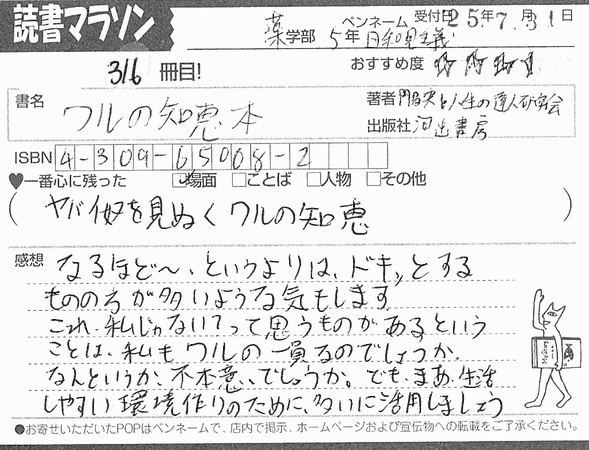 読書マラソン
受付日25年7月31日
ペンネーム
薬学部 5年 日和見主義
316冊目!
おすすめ度
書名 ワルの知恵本
著者 門昌央と人生の達人研究会
出版社 河出書房
ISBN 4-309-65008-2
♥一番心に残った ☑場面 □ことば □人物 □その他
(ヤバイ奴を見ぬくワルの知恵)
感想 なるほど〜、というよりは、ドキッとする
ものの方が多いような気もします
これ、私じゃない?って思うものがあるという
ことは、私もワルの一員なのでしょうか。
なんというか、不本意、でしょうか。でも、まあ、生活
しやすい環境作りのために、多いに活用しましょう
●お寄せいただいたPOPはペンネームで、店内で掲示、ホームページおよび宣伝物への転載をご了承ください。